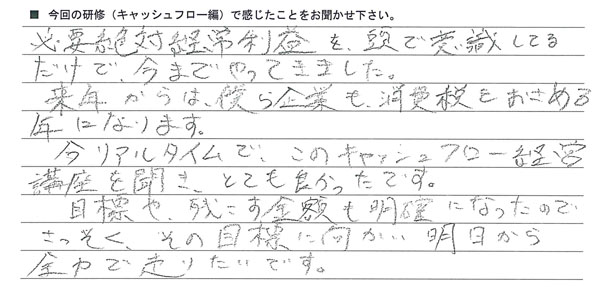 ■ 今回の研修(キャッシュフロー編)で感じたことをお聞かせ下さい。
必要絶対経常利益を、頭で意識してる
だけで、今までやってきました。
来年からは、僕ら企業も、消費税をおさめる
年になります。
今リアルタイムで、このキャッシュフロー経営
講座を聞き、とても良かったです。
目標や、残こす金額も明確になったので
さっそく、その目標に向かい明日から
全力で走りたいです。